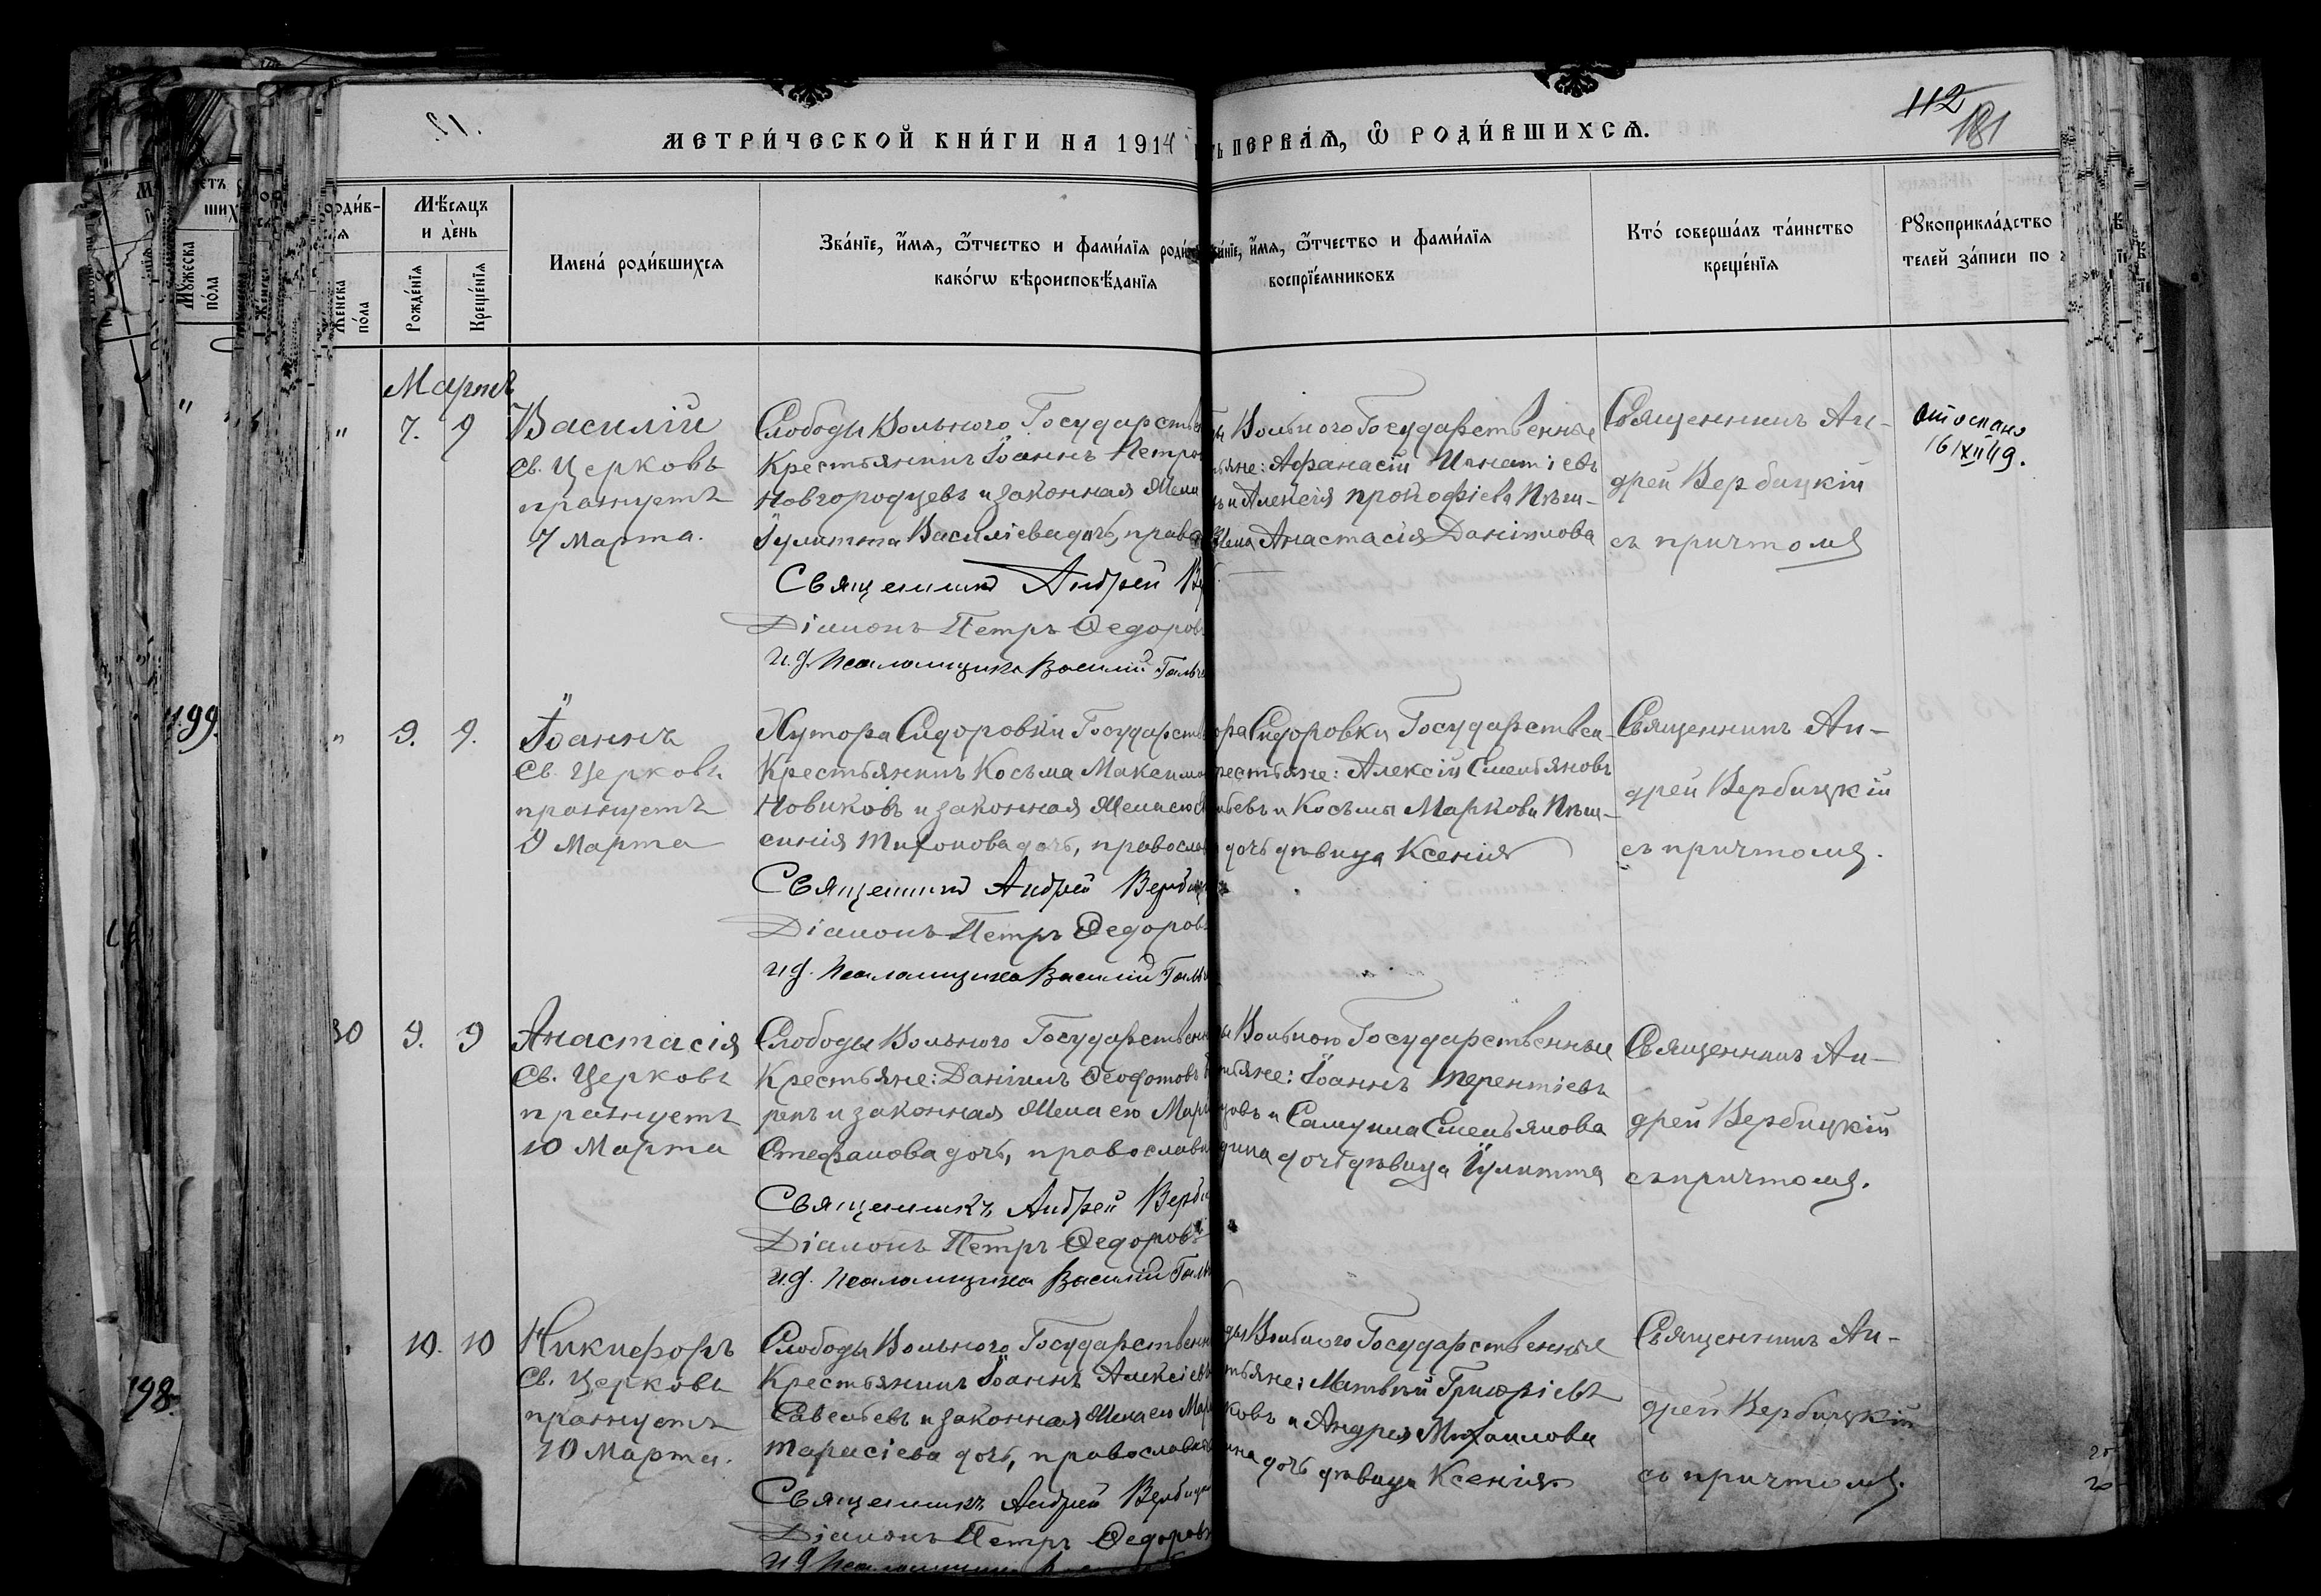 112
181
МЕТРИ́ЧЕСКОЙ КНИ́ГИ НА 1914
ПЕРВА́Ѧ, Ѿ РОДИ́ВШИХСѦ.
Мѣ́сѧцъ
и де́нь
Же́нска
по́ла
Рожде́нїѧ
Креще́нїѧ
Имена́ роди́вшихсѧ
Зва́нїе, и́мѧ, ѻ́тчество и фами́лїѧ
како́гѡ вѣроисповѣ́данїѧ
и́мѧ, ѻ́тчество и фами́лїѧ
воспрїе́мниковъ
Кто́ соверша́лъ та́инство
креще́нїѧ
Рꙋкоприкла́дство
телей за́писи по
Мартъ
" 7. 9
Василій
Св. Церковь
празнуетъ
7 Марта.
Слободы Вольного Государств
Крестьянинъ Іоаннъ Петро
Новгородцевъ и законная Жена
Іулитта Василіева дочь, права
Священникъ Андрей
Діаконъ Петръ Ѳедоровъ
И.д. Псаломщика Василій
Вольного Государственные
Афанасій Игнатіевъ
и Алексія Прокофіева
Жена Анастасія Даніилова
Священникъ Ан-
дрей Вербицкій
съ причтомъ
199.
" 9. 9.
Іоаннъ
Св. Церковь
празнуетъ
9 Марта
Хутора Сидоровки Государств
Крестьянинъ Косьма Максимо
Новиковъ и законная Жена его
Тихонова дочь, православ
Священникъ Андрей Верби
Діаконъ Петръ Ѳедоровъ
И.д. Псаломщика Василій
Сидоровки Государствен-
Алексій Емельяновъ
и Косьмы Маркова
дочь дѣвица Ксенія
Священникъ Ан-
дрей Вербицкій
съ причтомъ.
9. 9
Анастасія
Св. Церковь
празнуетъ
10 Марта
Слободы Вольного Государственн
Крестьяне: Даніилъ Ѳеодотовъ
и законная Жена его Мар
Стефанова дочь, православн
Священникъ Андрей Верби
Діаконъ Петръ Ѳедоровъ
И.д. Псаломщика Василій
Вольного Государственные
Іоаннъ Терентіевъ
и Самуила Емельянова
дочь дѣвица Іулитта
Священникъ Ан-
дрей Вербицкій
съ причтомъ.
198.
10. 10
Никифоръ
Св. Церковь
празнуетъ
10 Марта.
Слободы Вольного Государственн
Крестьянинъ Іоаннъ Алексіевъ
Савельевъ и законная Жена его Мар
Тарасіева дочь, православн
Священникъ Андрей Вербицк
Діаконъ Петръ Ѳедоровъ
Вольного Государственные
Матвѣй Григоріевъ
и Андрея Михаилова
дочь дѣвица Ксенія
Священникъ Ан-
дрей Вербицкій
съ причтомъ.